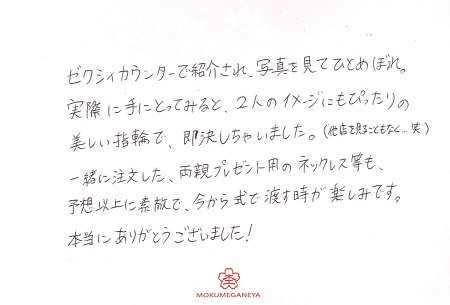 ゼクシィカウンターで紹介され、写真を見てひとめぼれ。
実際に手にとってみると、2人のイメージにもぴったりの
美しい指輪で、即決しちゃいました。(他店を見ることもなく…笑)
一緒に注文した、両親プレゼント用のネックレス等も、
予想以上に素敵で、今から式で渡す時が楽しみです。
本当にありがとうございました!
MOKUMEGANEYA